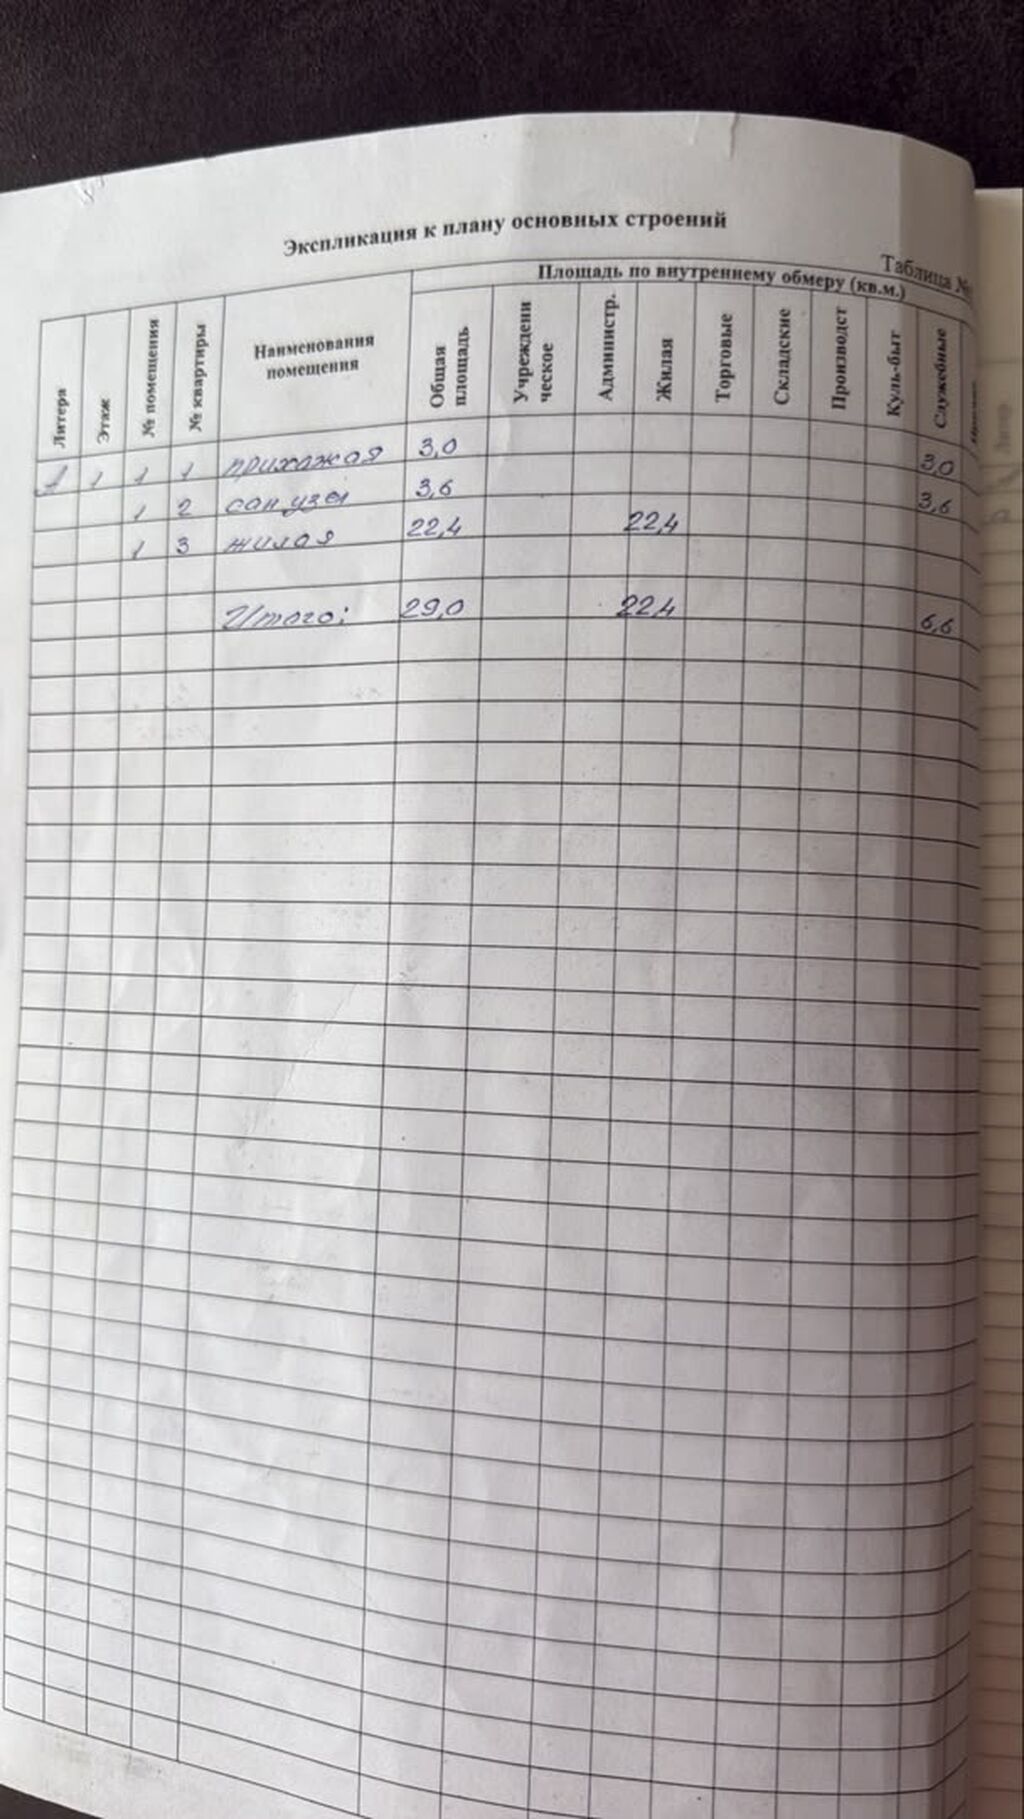 Экспликация к плану основных строений
Таблица №
Площадь по внутреннему обмеру (кв.м.)
Литера Этаж № помещения № квартиры Наименования помещения Общая площадь Учреждени ческое Администр. Жилая Торговые Складские Производст Куль-быт Служебные
1 1 1 прихожая 3,0 3,0
1 2 санузел 3,6 3,6
1 3 жилая 22,4 22,4
Итого: 29,0 22,4 6,6